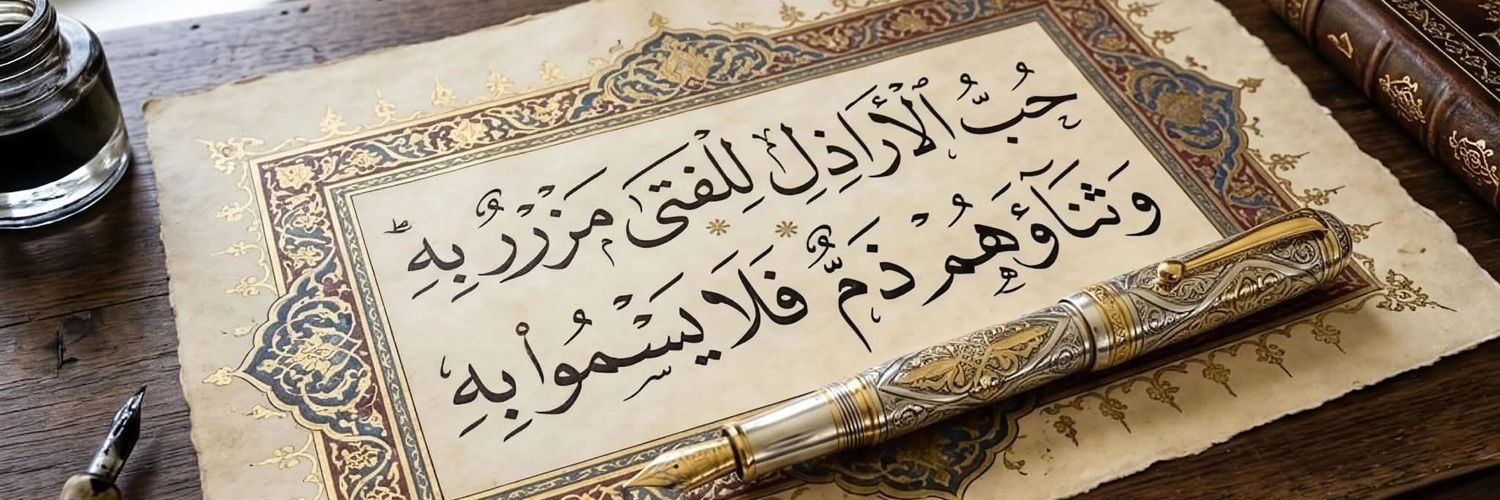 حُبُّ الْأَرَاذِلِ لِلْفَتَى مَزْرْرٌ بِهِ
وَثَنَآؤُهُمْ ذَمٌّ فَلَا يَسْمُواْ بِهِ